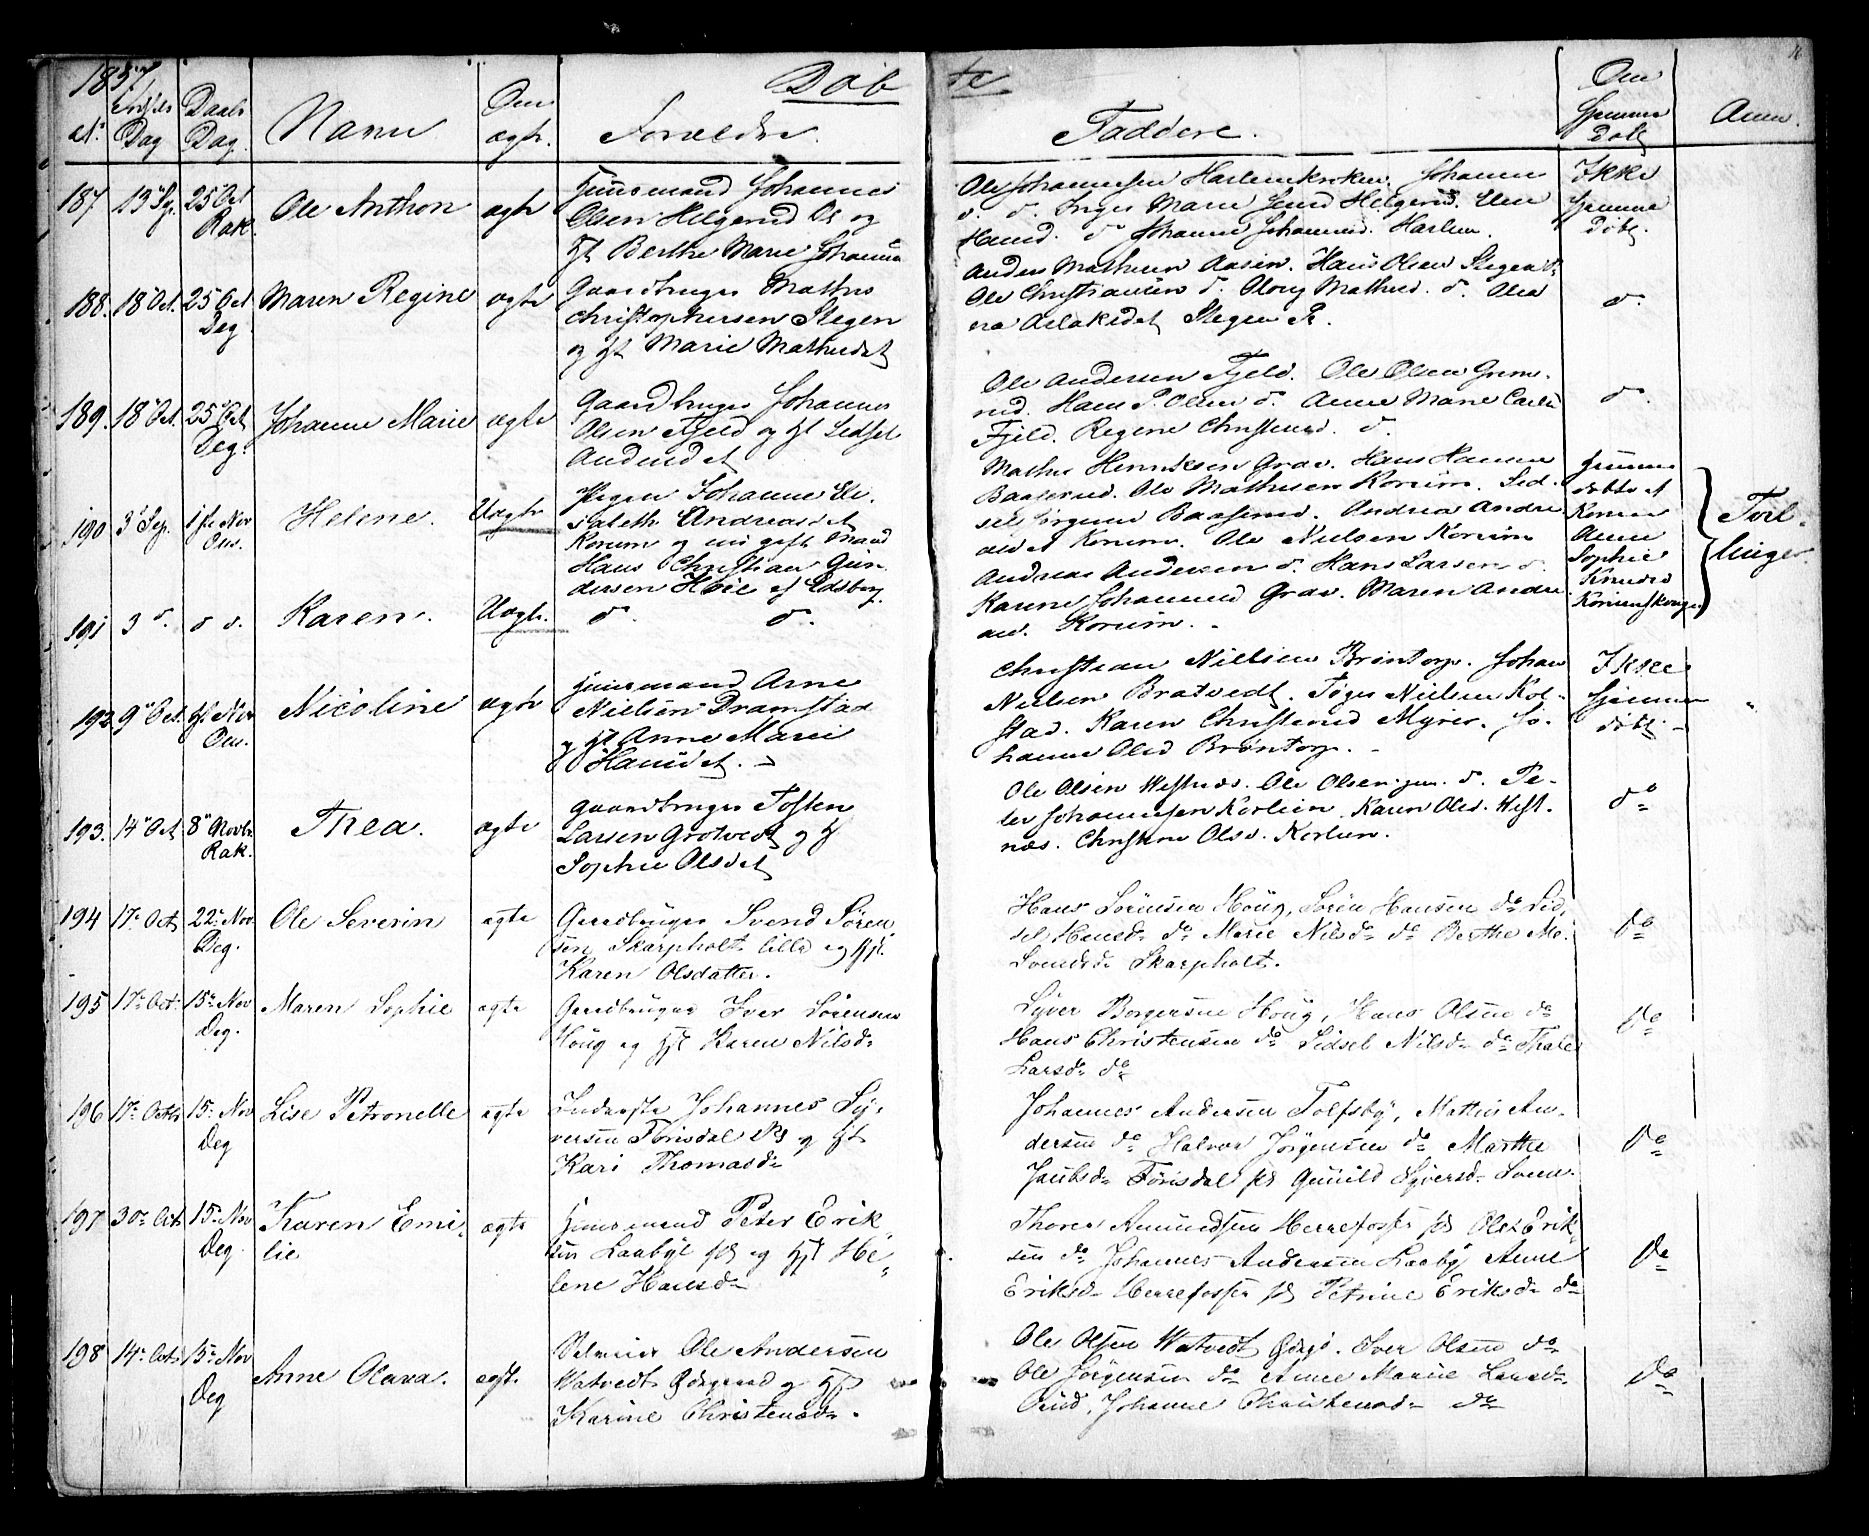 1857
Døb te
No
Fødsels Dag
Daabs Dag
Navn
Om ægte
Forældre
Faddere
Om hjemme døbt
Anm.
187 13 Sep. 25 Oct Rak. Ole Anthon ægte
Huusmand Johannes
Olsen Helgerud Ps og
Hst Berthe Marie
Ole Johannesen Harlemkroken. Johannes
d. d. Inger Marie Helgerud.
Hansd. d. Johanne Johannesd. Harlem.
Ikke hjemme døbt
188. 18 Oct. 25 Oct Deg Maren Regine ægte
Gaardbruger Mathis
Christophersen Stegen
og Hst Marie Mathisdat
Anders Mathesen Aasen. Hans Olsen Stegen
Ole Christiansen d. Mathisd. d.
na Aslaksdat Stegen P.
d.
189. 18 Oct. 25 Oct Deg. Johanne Marie ægte
Gaardbruger Johannes
Olsen Fjeld og Hst Sidsel
Andersdat
Ole Andersen Fjeld. Ole Olsen Grime-
rud. Hans P. Olsen d. Anne Marie
Fjeld. Regine Christensd. d.
d.
190 3 Sep. 1ste Nov Ous. Helene. Uægte
Pigen Johanne Eli-
sabeth Andreasdat
Korum og gift Mand
Hans Christian Gun-
dersen Høie af Eidsberg
Mathis Henriksen Grav. Hans Hansen
Baaserud. Ole Mathisen Korum. Sid-
sel Baaserud. Andrea Andre-
asdat Korum. Ole Nielsen Korum
Andreas Andersen d. Hans Larsen d.
Karine Johannesd Grav. Maren Andre
asd. Korum.
hjemme døbte af Korum Anne Sophie Knudsd Korumskougen
Tvil-
linger.
191 3 d. d d. Karen. Uægte.
d. d.
192 9 Oct. 1st Nov Ous. Nicoline ægte
Huusmand Arne
Nielsen Dramstad
og Hst Anne Marie
Hansdat.
Christian Nielsen Brøntorp. Johan
Nielsen Bratvedt. Nielsen Kol-
stad. Karen Christensd Myrer. Jo-
hanne Olsd Brøntorp.
Ikke hjemme døbt
193. 14 Oct 8 Novbr Rak. Thea. ægte
Gaardbruger Tosten
Larsen Grotvedt og H
Sophie Olsdat
Ole Olsen Westnæs. Ole Olsen jun. d. Pe-
ter Johannesen Korslien. Karen Olsd. West-
næs. Olsd. Korslien.
do
194 17 Oct 22 Nov Deg. Ole Severin ægte
Gaardbruger Svend Søren
sen Skarpholt lille og Hst
Karen Olsdatter.
Hans Sørensen Houg, Søren Hansen do Sid-
sel Hansd do Marie Nilsd do Berthe Ma-
Svendsd Skarpholt.
do
195 17 Oct. 15 Nov Deg. Maren Sophie ægte
Gaardbruger Iver Sørensen
Houg og Hst Karen Nilsd
Syver Borgersen Houg, Hans Olsen do
Hans Christensen do Sidsel Nilsd do Thale
Larsd do
do
196 17 Octb 15 Nov Deg Lise Petronelle ægte
Inderste Johannes Sy-
versen Torisdal Ps og Hst
Kari Thomasd
Johannes Andersen Tolfsby, Mathis An-
dersen do Halvor Jørgensen do Marthe
Jacobsd Torisdal ps Gunild Syversd
do
197 30 Oct 15 Nov Deg. Karen Emi- lie ægte
Huusmand Peter Erik
sen Laabyl ps og Hst He-
lene Hansd
Thorer Amundsen Herrefosse ps Erik
sen do Johannes Andersen Laaby Anne
Eriksd Herrefosse ps Petrine Eriksd do
do
198 14 Oct 15 Nov Deg Anne Olava. ægte
Selveier Ole Andersen
Watvedt og Hst
Karine Christensd.
Ole Olsen Watvedt Iver Olsen do
Ole Jørgensen do Anne Marie Larsd
Johanne Christensd do
do